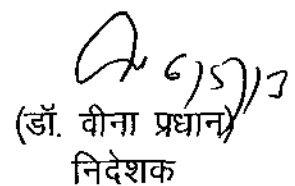 6/5/13
(डॉ. वीना प्रधान)
निदेशक